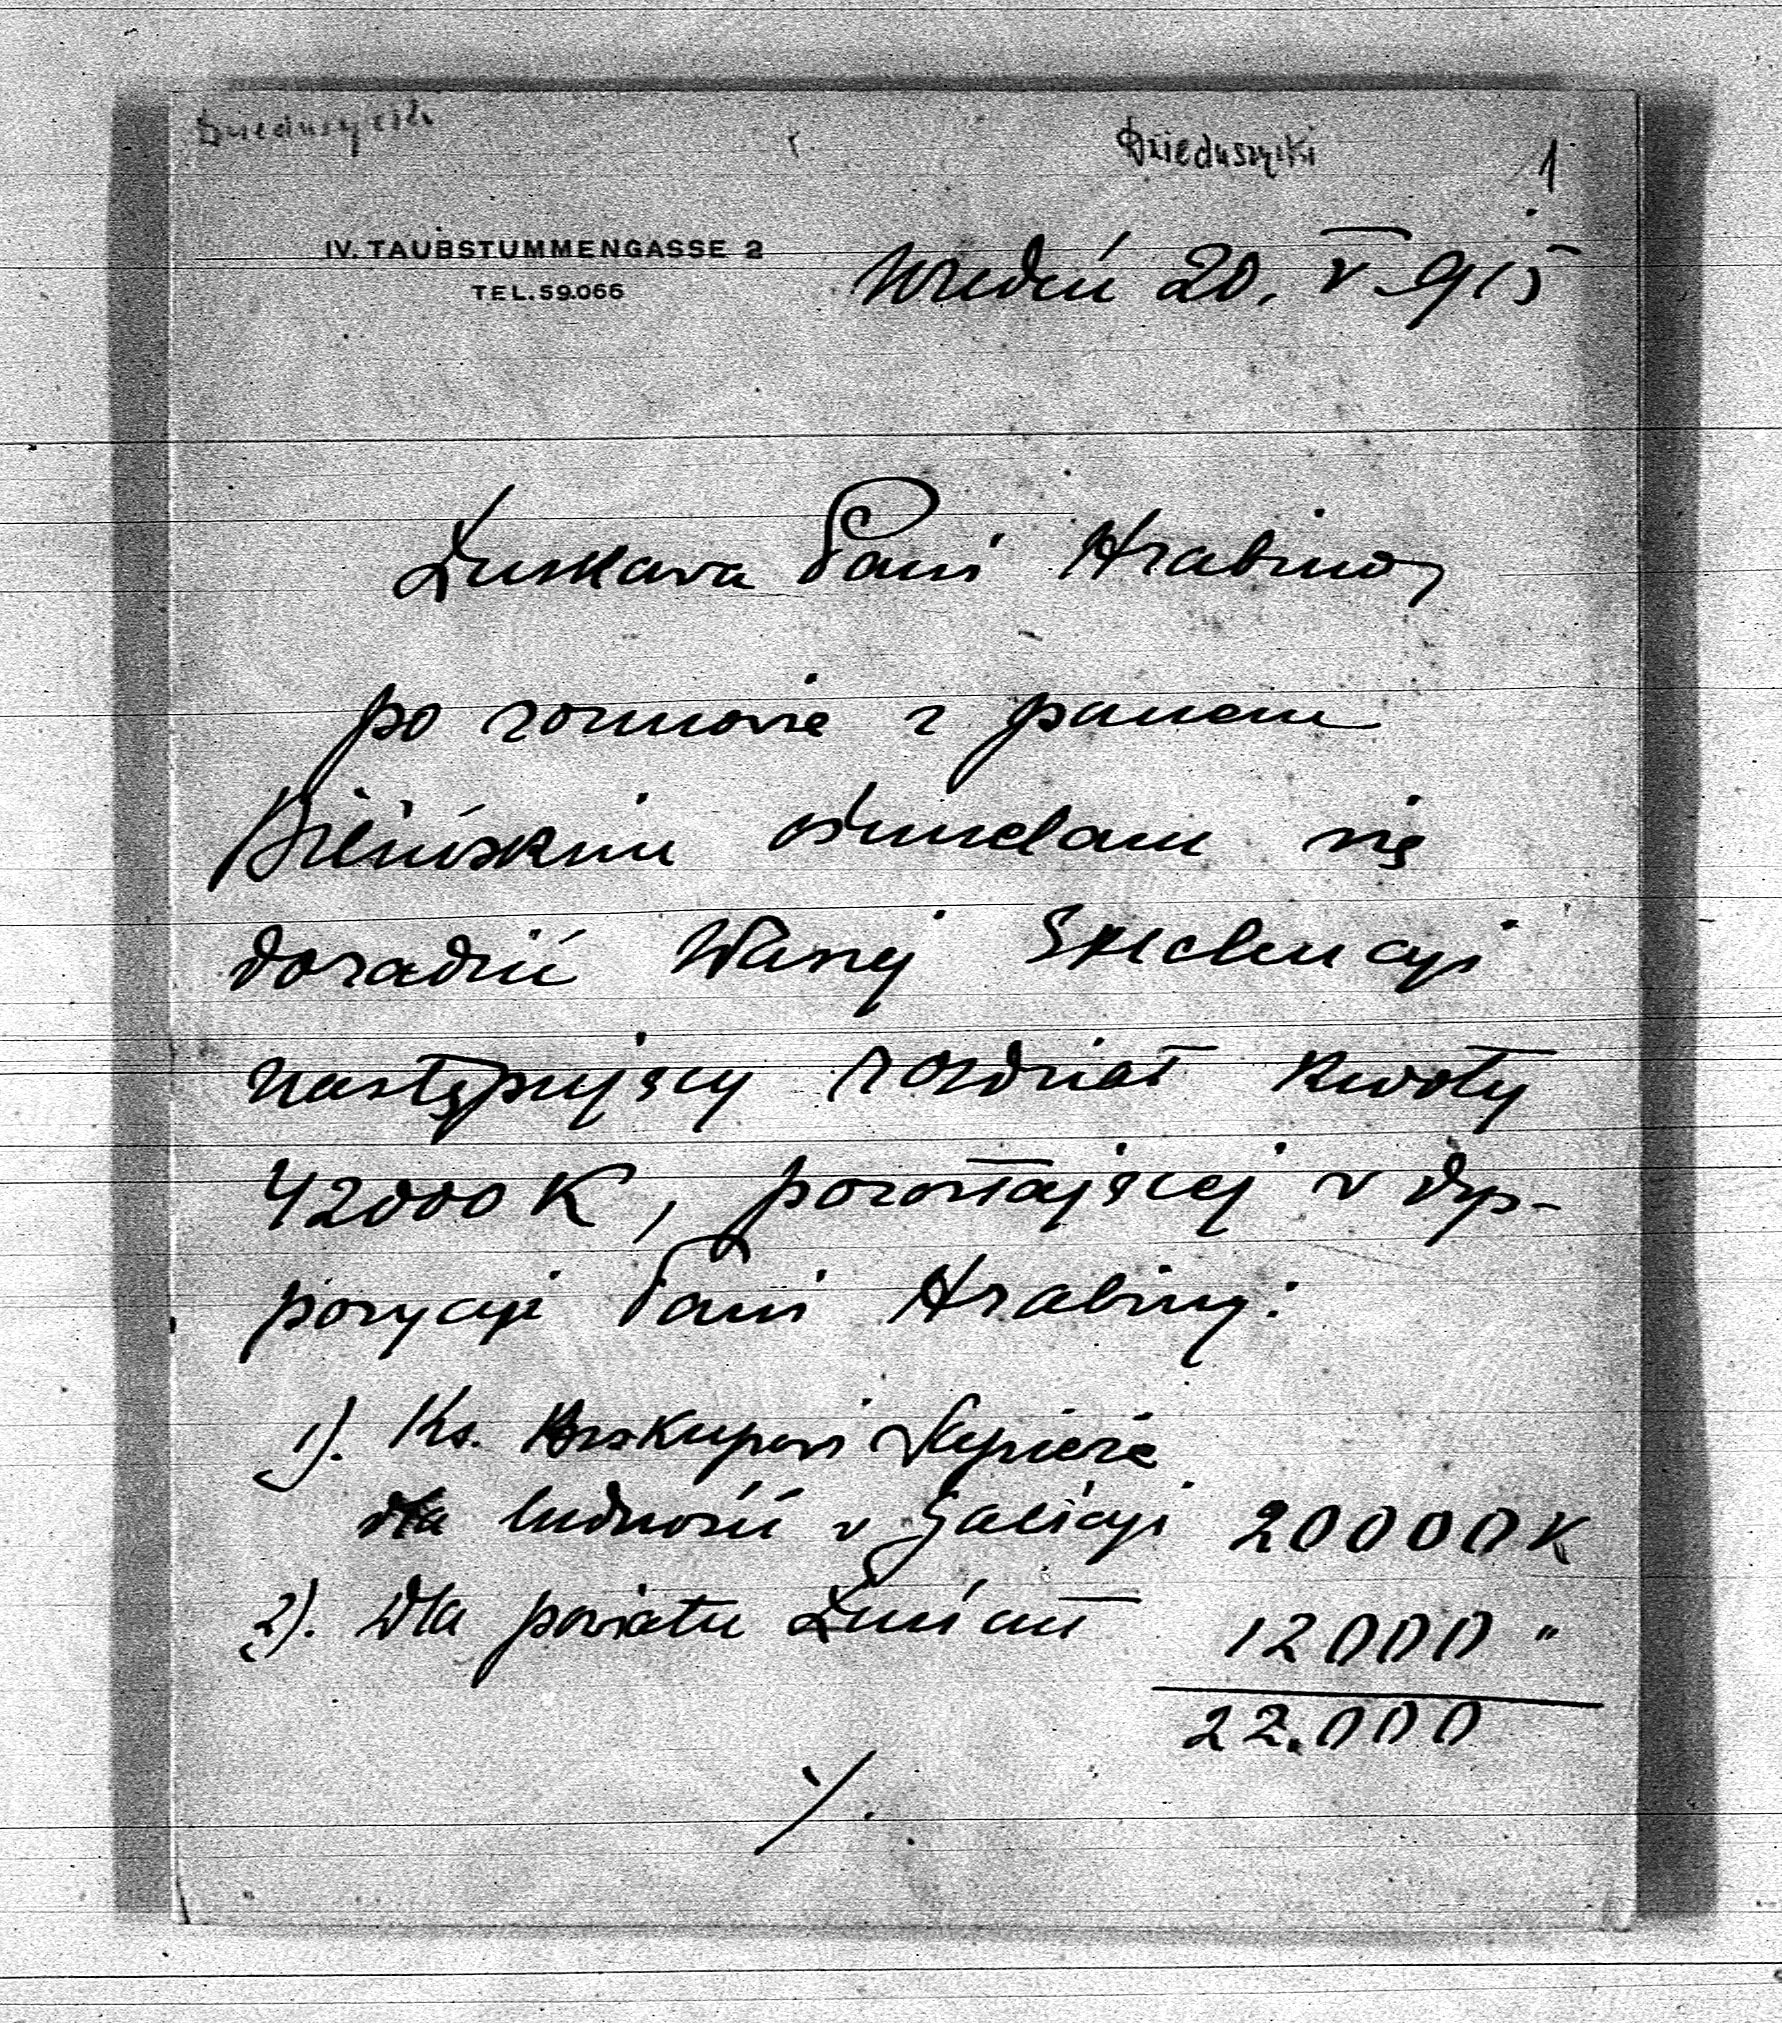 Dzieduszycki
Dzieduszycki 1
IV. TAUBSTUMMENGASSE 2
TEL. 59.066
Wiedeń 20. V 915
Łaskawa Pani Hrabino,
po rozmowie z panem
Bilińskim ośmielam się
doradzić Waszej Excelencyi
następujący rozdział kwoty
42000 K, pozostającej w dys-
pozycyi Pani Hrabiny:
1). Ks. Biskupowi Sapieże
dla ludności w Galicyi 20000 K
2). Dla powiatu Łańcut 12000 "
22.000
./.